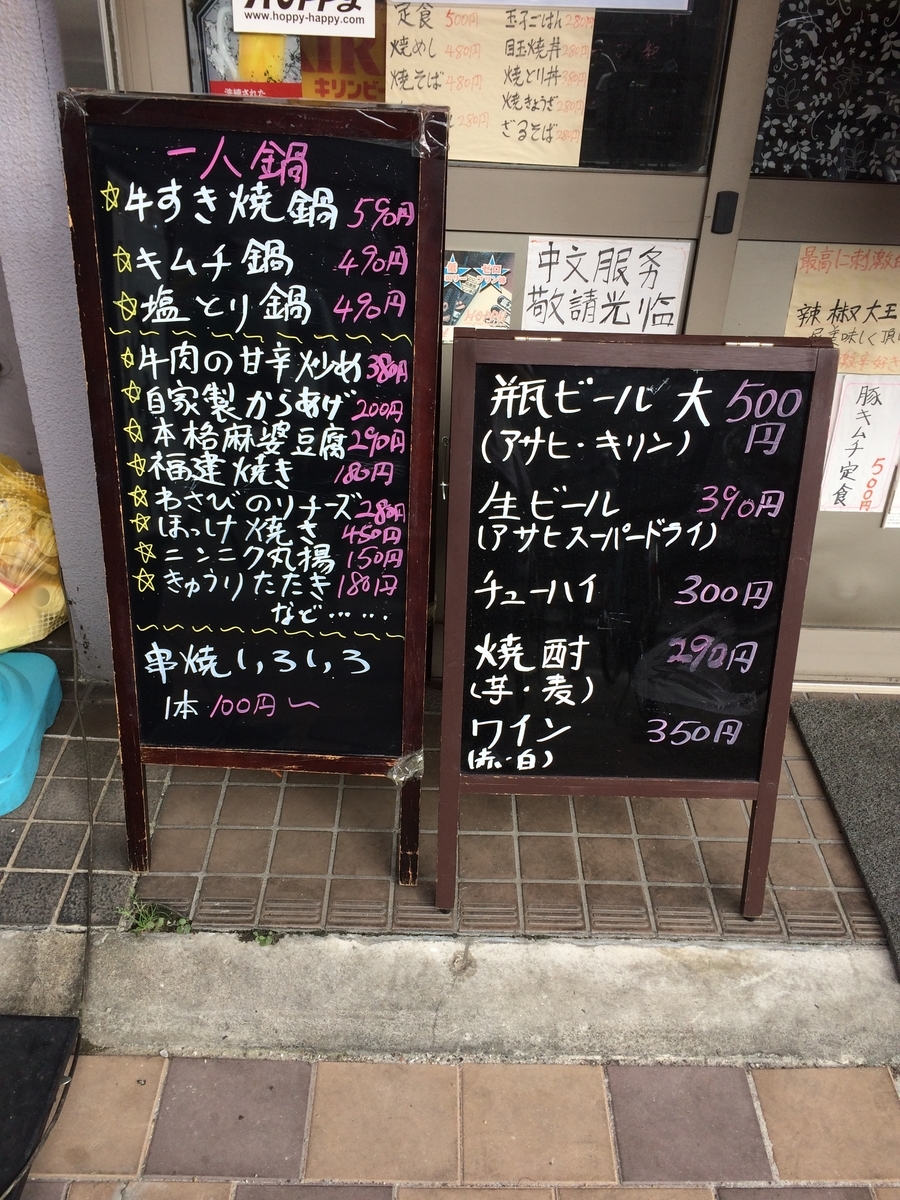 www.hoppy-happy.com
キリンビ
定食 500円
焼めし 480円
焼そば 480円
280円
玉子ごはん 280円
目玉焼丼
焼とり丼
焼きょうざ 280円
ざるそば
一人鍋
☆牛すき焼鍋 590円
☆キムチ鍋 490円
☆塩とり鍋 490円
☆牛肉の甘辛炒め 380円
☆自家製からあげ 200円
☆本格麻婆豆腐 290円
☆福建焼き 180円
☆わさびのりチーズ 280円
☆ほっけ焼き 450円
☆ニンニク丸揚 150円
☆きゅうりたたき 180円
など……
串焼いろいろ
1本 100円〜
中文服务
敬請光临
瓶ビール 大 500円
(アサヒ・キリン)
生ビール 390円
(アサヒスーパードライ)
チューハイ 300円
焼酎 290円
(芋・麦)
ワイン 350円
(赤・白)
最高に刺激
辣椒大王
美味しく頂
豚キムチ定食 500円